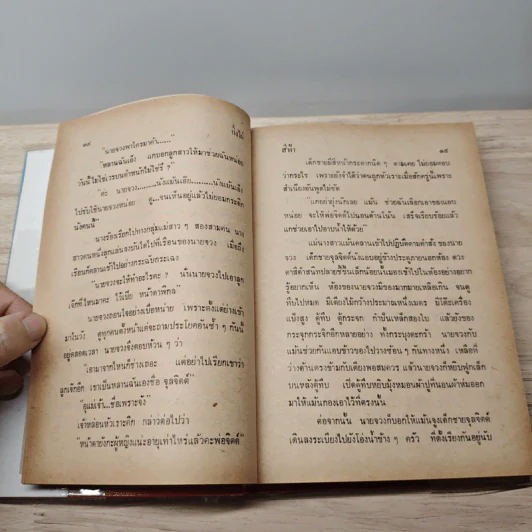 ๑๘
กิ่งไผ่
"นายจวงพาใครมาคัน....."
"หลานฉันเอ็ง แกบอกลูกสาวให้มาช่วยฉันหน่อย
วันนี้ไม่ใช่เวรบนตำหนักไม่ใช่รึ ?"
"ค่ะ นายจวง......นังแม้นเอ๊ย......นังแม้นเอ้ย
ไปรับใช้นายจวงหน่อย
นางร้องเรียกไปทางกลุ่มแม่สาว ๆ สองสามคน นาง
สาวคนหนึ่งลุกแล่นลงบันไดไปที่เรือนของนายจวง เมื่อถึง
เรือนก็คลานเข้าไปอย่างกระฉับกระเฉง
"นายจวงจะให้ทำอะไรคะ ? นั่นนายจวงไปเอาลูก
เจ๊กที่ไหนมาคะ ไว้เปีย หน้าตาพิกล"
นายจวงถอนใจอย่างเบื่อหน่าย เพราะตั้งแต่ย่างเข้า
มาในวัง ดูทุกคนตั้งหน้าแต่จะถามประโยคอนซ้ำ ๆ กันนี้
อยู่ตลอดเวลา นายจวงจึงตอบห้วน ๆ ว่า
"เอามาจากไหนก็ช่างเถอะ แต่อย่าไปเรียกเขาว่า
ลูกเจ๊กอีก เขาเป็นหลานฉันเองชื่อ จุลจิตต์"
"อุแม่เจ้า...ชื่อเพราะจัง"
เจ้าหล่อนหัวเราะคิก กล่าวต่อไปว่า
"หน้าตายังกะผู้หญิงแน่ะอายุเท่าไหร่แล้วคะพ่อจิตต์"
สีฟ้า
๑๙
เด็กชายมีสีหน้ากระดากนิด ๆ ตามเคย ไม่ยอมตอบ
ว่ากระไร เพราะยังจำได้ว่าตนถูกหัวเราะเมื่อสักครู่นี้เพราะ
สำเนียงอันพูดไม่ชัด
"แกอย่ายุ่งนักเลย แม้น ช่วยฉันเรือนเอาของแอบ
หน่อย จะให้พ่อจิตต์ไปนอนด้านโน้น เสร็จเรียบร้อยแล้ว
แกช่วยเอาไปอาบน้ำให้ด้วย"
แม่นางสาวแม้นคลานเข้าไปปฏิบัติตามคำสั่ง ของนาย
จวง เด็กชายจุลจิตต์นั่งแอบอยู่ข้างประตูภายนอกห้อง ดวง
ตาสีดำสนิทปลายชี้ขึ้นเล็กน้อยนั้นมองเข้าไปในห้องอย่างอยาก
รู้อยากเห็น ห้องของนายจวงมีของมากมายเหลือเกิน จนดู
ทึบไปหมด มีเตียงไม้กว้างประมาณหนึ่งเมตร มีโต๊ะเครื่อง
แป้งสูง ตู้ทึบ ตู้กระจก กำปั่นเหล็กสองใบ แล้วยังของ
กระจุกกระจิกอีกหลายอย่าง ทั้งกระบุงตะกร้า นายจวงกับ
แม้นช่วยกันแอบข้าวของไปวางซ้อน ๆ กันทางหนึ่ง เหลือที่
ว่างด้านตรงข้ามกับเตียงพอสมควร แล้วนายจวงก็หยิบฟูกเล็ก
บนหลังตู้ทึบ เปิดตู้ทึบหยิบมุ้งหมอนผ้าปูที่นอนผ้าห่มออก
มาให้แม้นกองเอาไว้ที่ตรงนั้น
ต่อจากนั้น นายจวงก็บอกให้แม้นจูงเด็กชายจุลจิตต์
เดินลงระเบียงไปยังโอ่งน้ำข้าง ๆ ครัว ที่ตั้งเรียงกันอยู่นับ